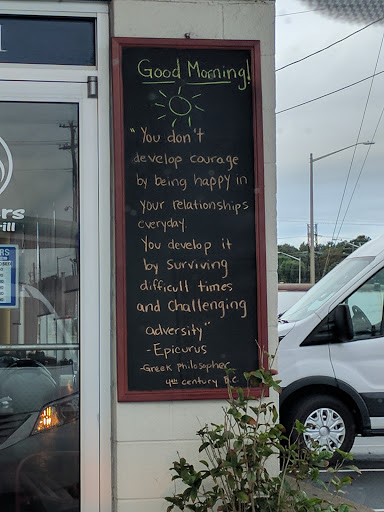 Good Morning!
"You don't
develop courage
by being happy in
your relationships
everyday.
You develop it
by surviving
difficult times
and challenging
adversity"
-Epicurus
-Greek philosopher
4th century B.C.